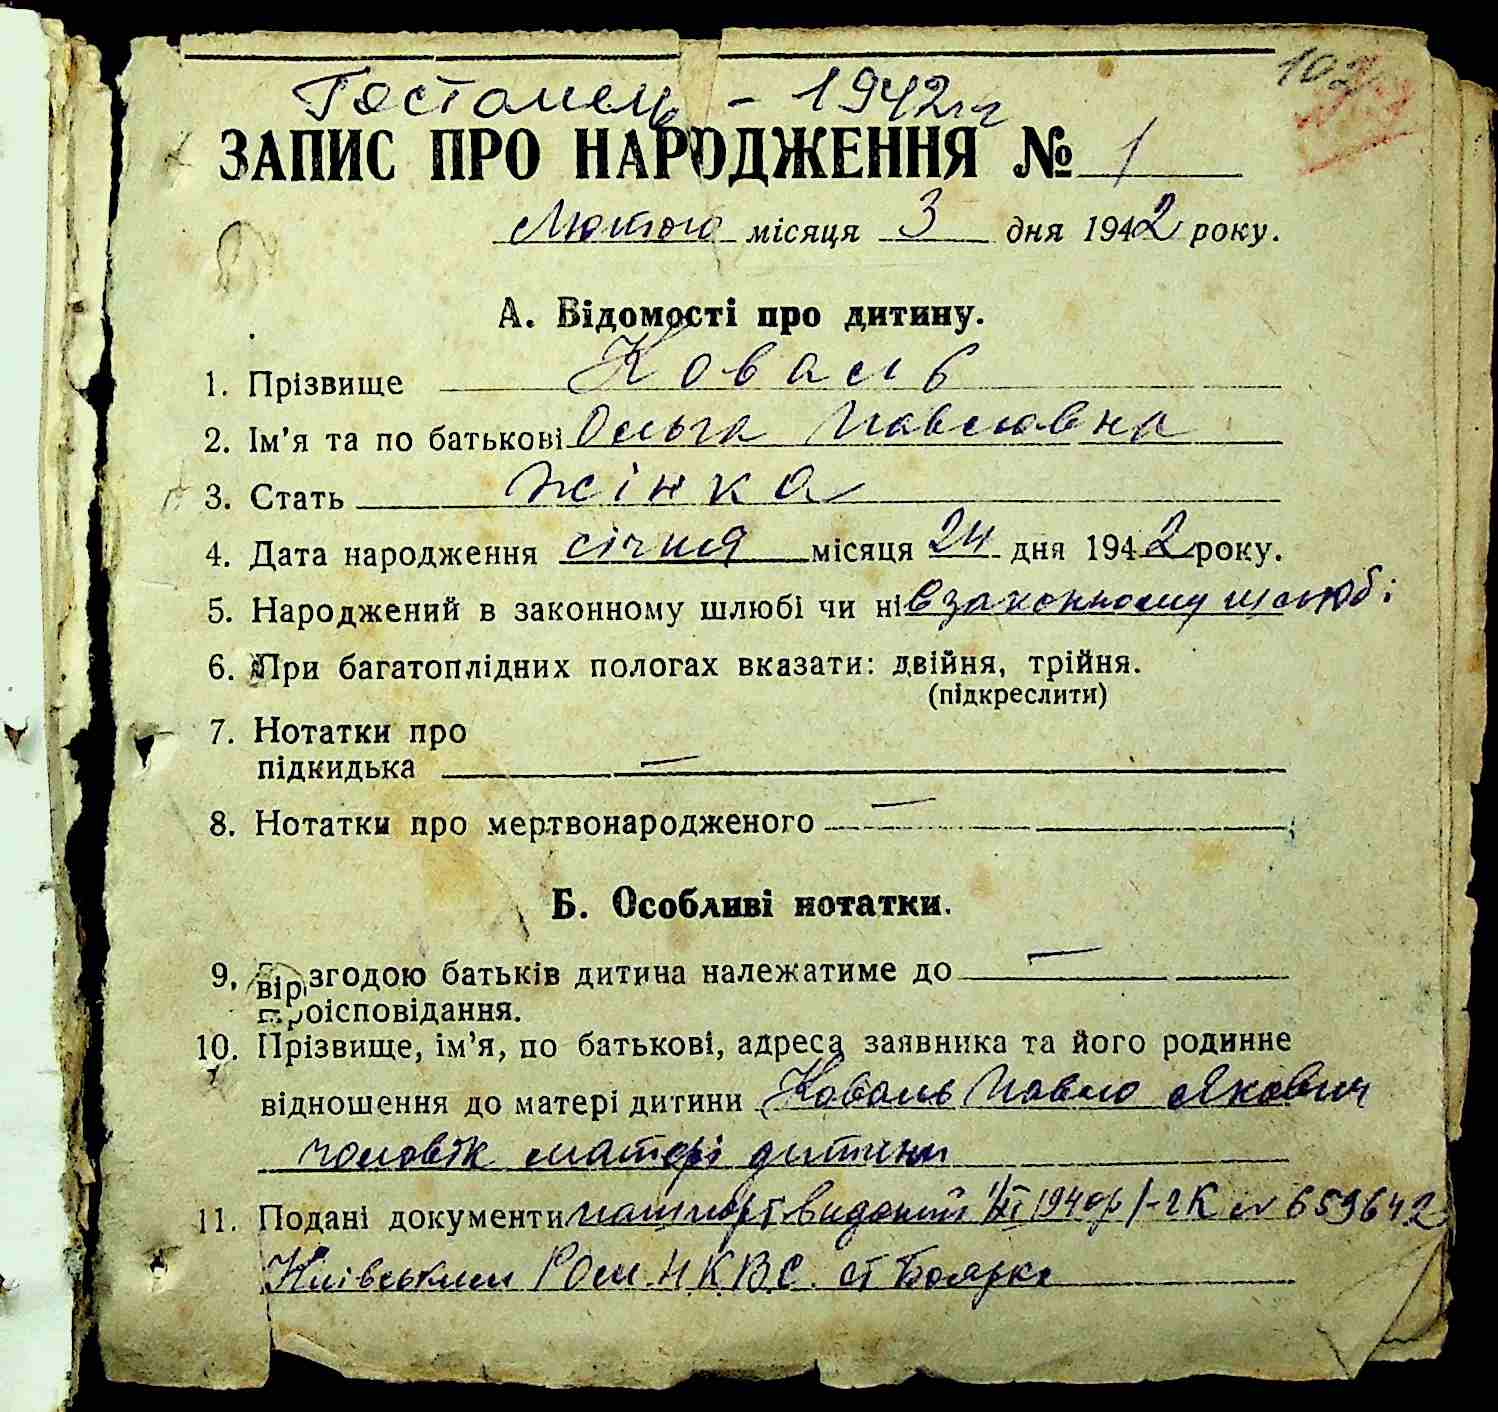 Гостомель - 1942 р
ЗАПИС ПРО НАРОДЖЕННЯ № 1
Лютого місяця 3 дня 1942 року.
А. Відомості про дитину.
1. Прізвище Коваль
2. Ім'я та по батькові Ольга Павловна
3. Стать жінка
4. Дата народження січня місяця 24 дня 1942 року.
5. Народжений в законному шлюбі чи ні в законному шлюбі
6. При багатоплідних пологах вказати: двійня, трійня.
(підкреслити)
7. Нотатки про
підкидька —
8. Нотатки про мертвонародженого —
Б. Особливі нотатки.
9. згодою батьків дитина належатиме до —
віроісповідання.
10. Прізвище, ім'я, по батькові, адреса заявника та його родинне
відношення до матері дитини Коваль Павло Якович
чоловік матері дитини
11. Подані документи паспорт виданий 1940р № 659642
Київським РОм Н.К.В.С. ст Боярка